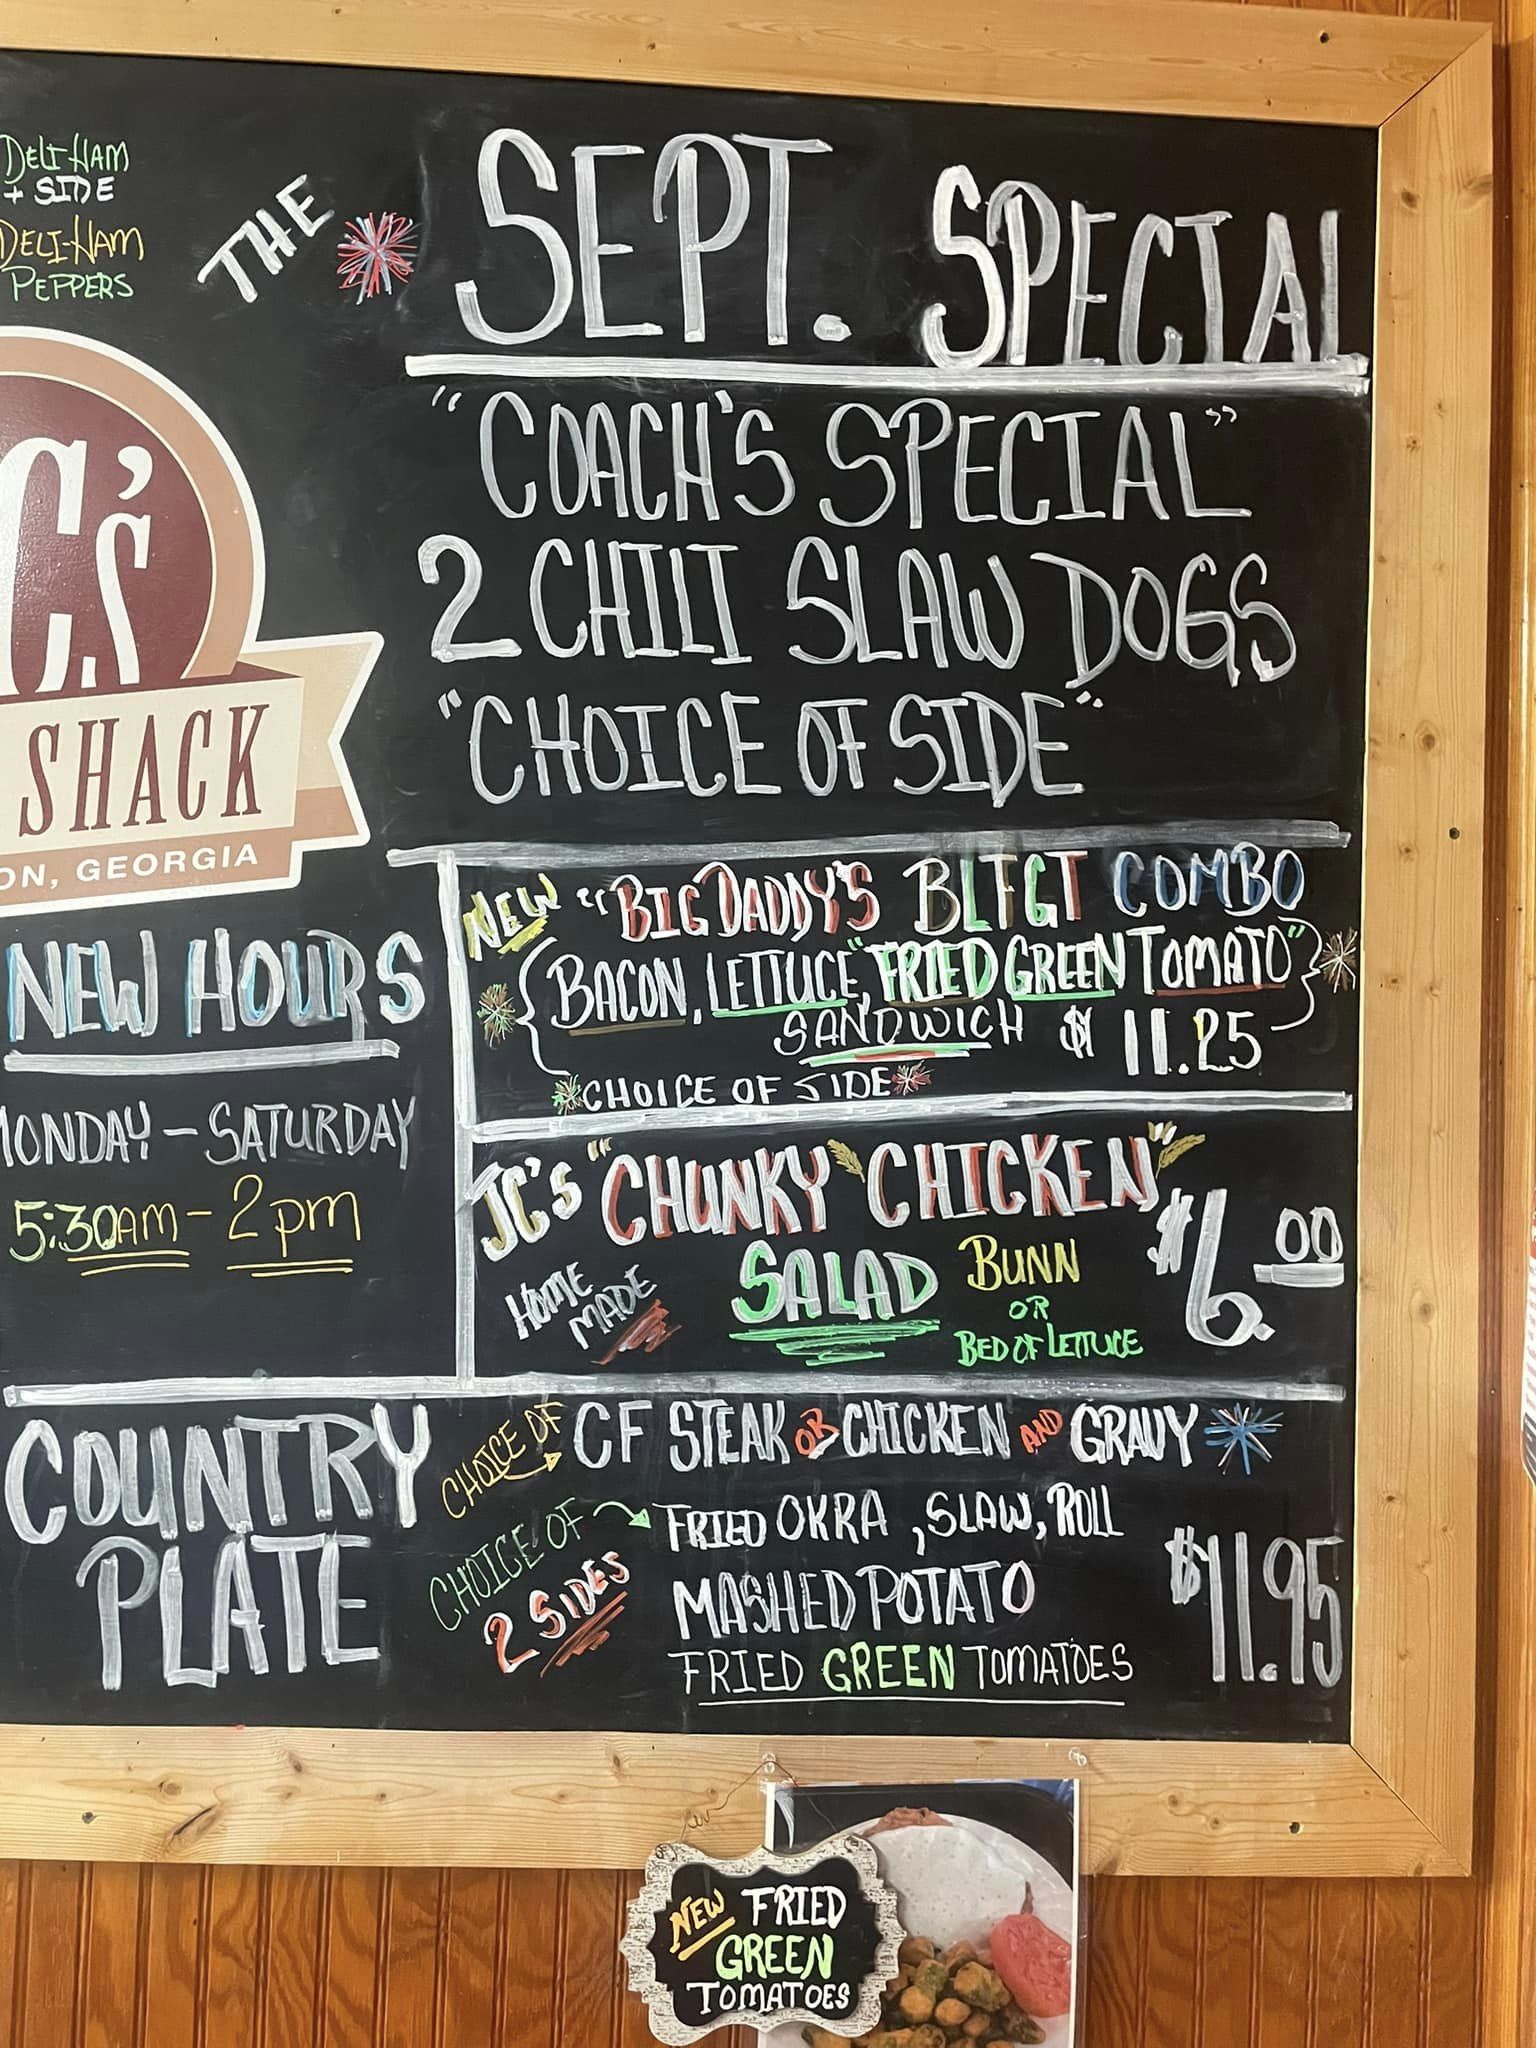 DELI-HAM
+ SIDE
DELI-HAM
PEPPERS
THE SEPT. SPECIAL
"COACH'S SPECIAL"
2 CHILI SLAW DOGS
"CHOICE OF SIDE"
C's
SHACK
ON, GEORGIA
NEW HOURS
MONDAY - SATURDAY
5:30AM - 2pm
NEW "BIG DADDY'S BLFGT COMBO
BACON, LETTUCE, "FRIED GREEN TOMATO"
SANDWICH $11.25
CHOICE OF SIDE
JC'S "CHUNKY CHICKEN"
HOME MADE
SALAD
BUNN
OR
BED OF LETTUCE
$6.00
COUNTRY
PLATE
CHOICE OF CF STEAK OR CHICKEN AND GRAVY
CHOICE OF
2 SIDES
FRIED OKRA, SLAW, ROLL
MASHED POTATO
FRIED GREEN TOMATOES
$11.95
NEW FRIED
GREEN
TOMATOES